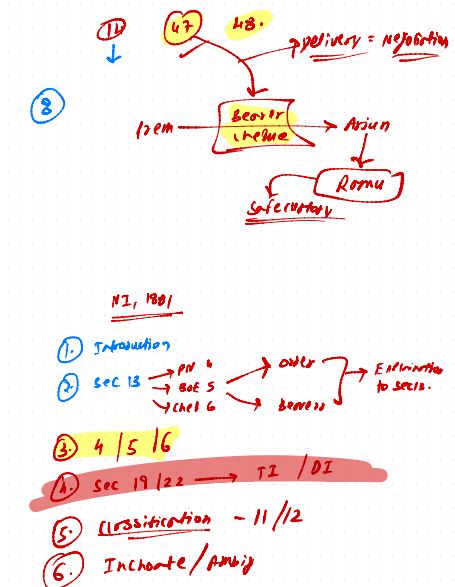 14 47 48.
Delivery = Negotiation
8
Prem Bearer cheque Arjun
Romu
Safe custody
NI, 1881
1. Introduction
2. Sec 13 PN 4 order Explanation
BOE 5 to Sec 13.
Che 6 bearer
3. 4 / 5 / 6
4. Sec 19 / 22 TI / DI
5. Classification - 11 / 12
6. Inchoate / Ambig